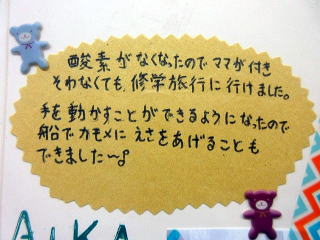 酸素がなくなったのでママが付き
そわなくても、修学旅行に行けました。
手を動かすことができるようになったので
船でカモメにえさをあげることも
できました〜♪
AiKA